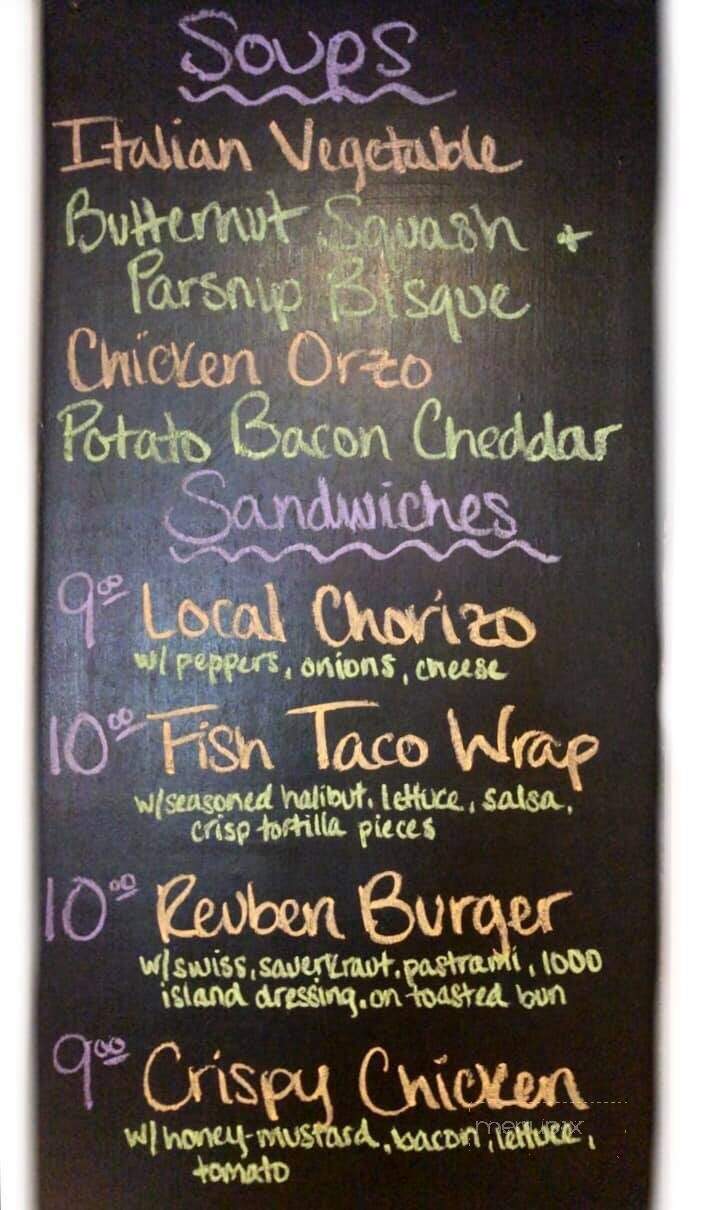 Soups
Italian Vegetable
Butternut Squash +
Parsnip Bisque
Chicken Orzo
Potato Bacon Cheddar
Sandwiches
9.00 Local Chorizo
w/ peppers, onions, cheese
10.00 Fish Taco Wrap
w/seasoned halibut, lettuce, salsa,
crisp tortilla pieces
10.00 Reuben Burger
w/swiss, sauerkraut, pastrami, 1000
island dressing, on toasted bun
9.00 Crispy Chicken
w/ honey-mustard, bacon, lettuce,
tomato
menupix